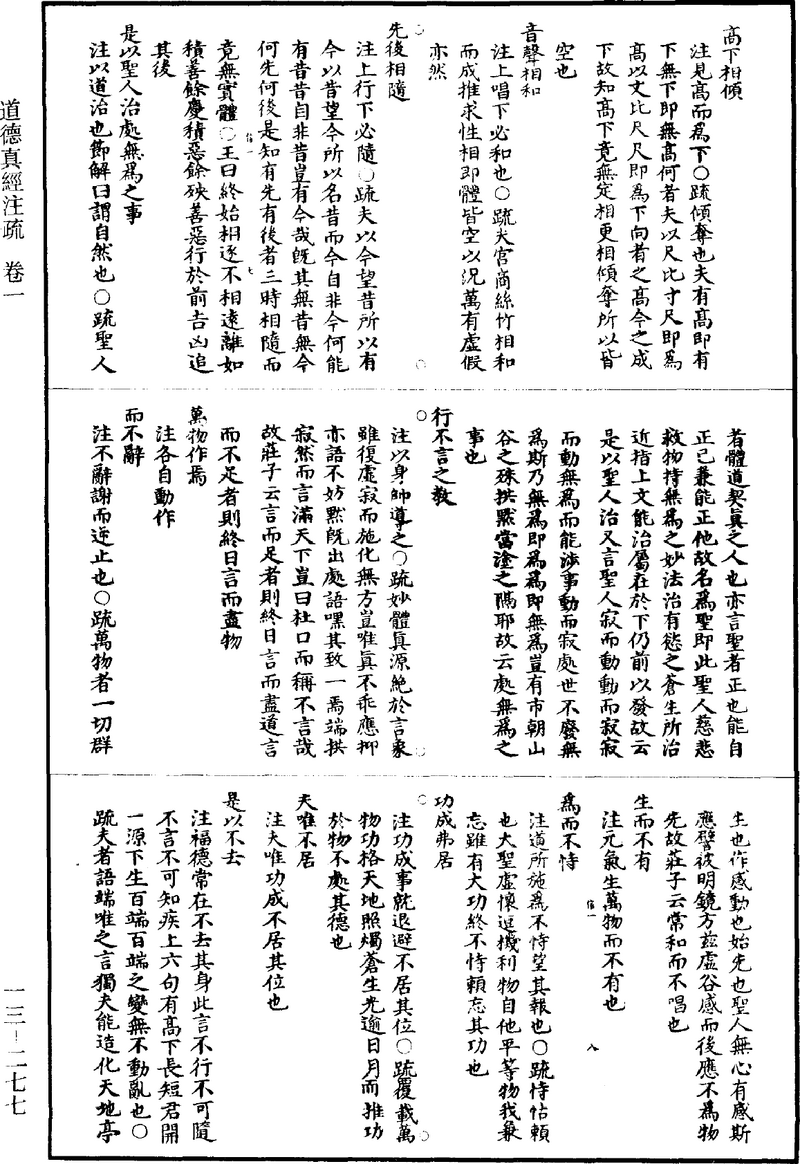 高下相傾
注見高而爲下〇疏傾奪也夫有高即有
下無下即無高何者夫以尺比寸尺即爲
高以丈比尺尺即爲下向者之高今之成
下故知高下竟無定相更相傾奪所以皆
空也
音聲相和
注上唱下必和也〇疏夫宮商絲竹相和
而成推求性相即體皆空以況萬有虛假
亦然
先後相隨
注上行下必隨〇疏夫以今望昔所以有
今以昔望今所以名昔而今自非今何能
有昔昔自非昔豈有今哉旣其無昔無今
何先何後是知有先有後者三時相隨而
竟無實體〇王曰終始相逐不相遠離如
積善餘慶積惡餘殃善惡行於前吉凶追
其後
是以聖人治處無爲之事
注以道治也節解曰謂自然也〇疏聖人
者體道契眞之人也亦言聖者正也能自
正己兼能正他故名爲聖即此聖人慈悲
救物持無爲之妙法治有慾之蒼生所治
近指上文能治屬在於下仍前以發故云
是以聖人治又言聖人寂而動動而寂寂
而動無爲而能涉事動而寂處世不廢無
爲斯乃無爲即爲爲即無爲豈有市朝山
谷之殊拱默當塗之隔耶故云處無爲之
事也
行不言之教
注以身帥導之〇疏妙體眞源絶於言象
雖復虛寂而施化無方豈唯眞不乖應抑
亦語不妨默旣出處語嘿其致一焉端拱
寂然而言滿天下豈曰杜口而稱不言哉
故莊子云言而足者則終日言而盡道言
而不足者則終日言而盡物
萬物作焉
注各自動作
而不辭
注不辭謝而逆止也〇疏萬物者一切群
生也作感動也始先也聖人無心有感斯
應譬彼明鏡方茲虛谷感而後應不爲物
先故莊子云常和而不唱也
生而不有
注元氣生萬物而不有也
爲而不恃
注道所施爲不恃望其報也〇疏恃怙賴
也大聖虛懷逗機利物自他平等物我兼
忘雖有大功終不恃賴忘其功也
功成弗居
注功成事就退避不居其位〇疏覆載萬
物功格天地照燭蒼生光逾日月而推功
於物不處其德也
夫唯不居
注夫唯功成不居其位也
是以不去
注福德常在不去其身此言不行不可隨
不言不可知疾上六句有高下長短君開
一源下生百端百端之變無不動亂也〇
疏夫者語端唯之言獨夫能造化天地亭
道德真經注疏　卷一
一三—二七七